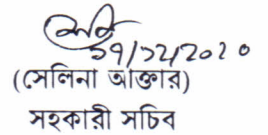 ১৭/১২/২০২০
(সেলিনা আক্তার)
সহকারী সচিব